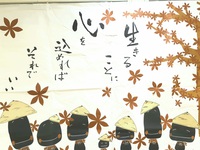 生きる
ことに
心を
込めれば
それで
いい